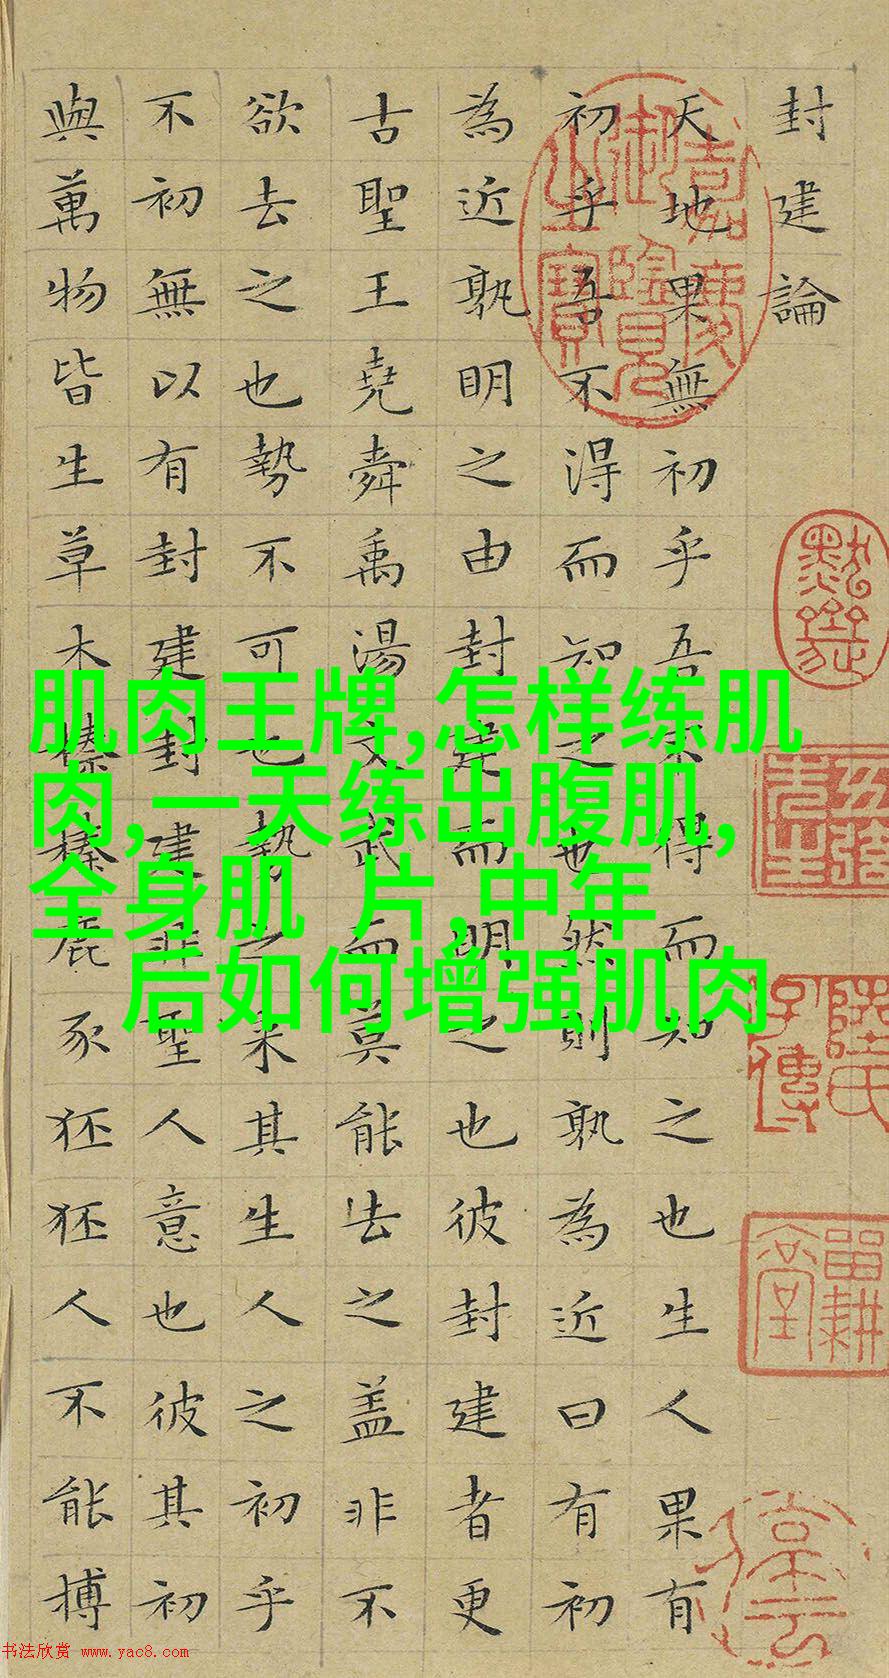 封建論
天地果無初乎吾不得而知之也生人果有
初乎吾不得而知之也然則孰為近曰有初
為近孰明之由封建而明之也彼封建者更
古聖王堯舜禹湯文武而莫能去之盖非不
欲去之也勢不可也勢之来其生人之初乎
不初無以有封建封建非聖人意也彼其初
與萬物皆生草木榛榛鹿豕狉狉人不能搏
嘉慶
御覽
之寶
陸氏
子傳
畱耕
堂
肌肉王牌,怎样练肌
肉,一天练出腹肌,
全身肌 片,中年
后如何增强肌肉
书法欣赏 www.yac8.com